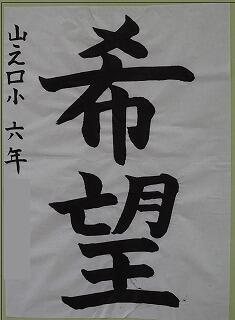 希望
山之口小 六年